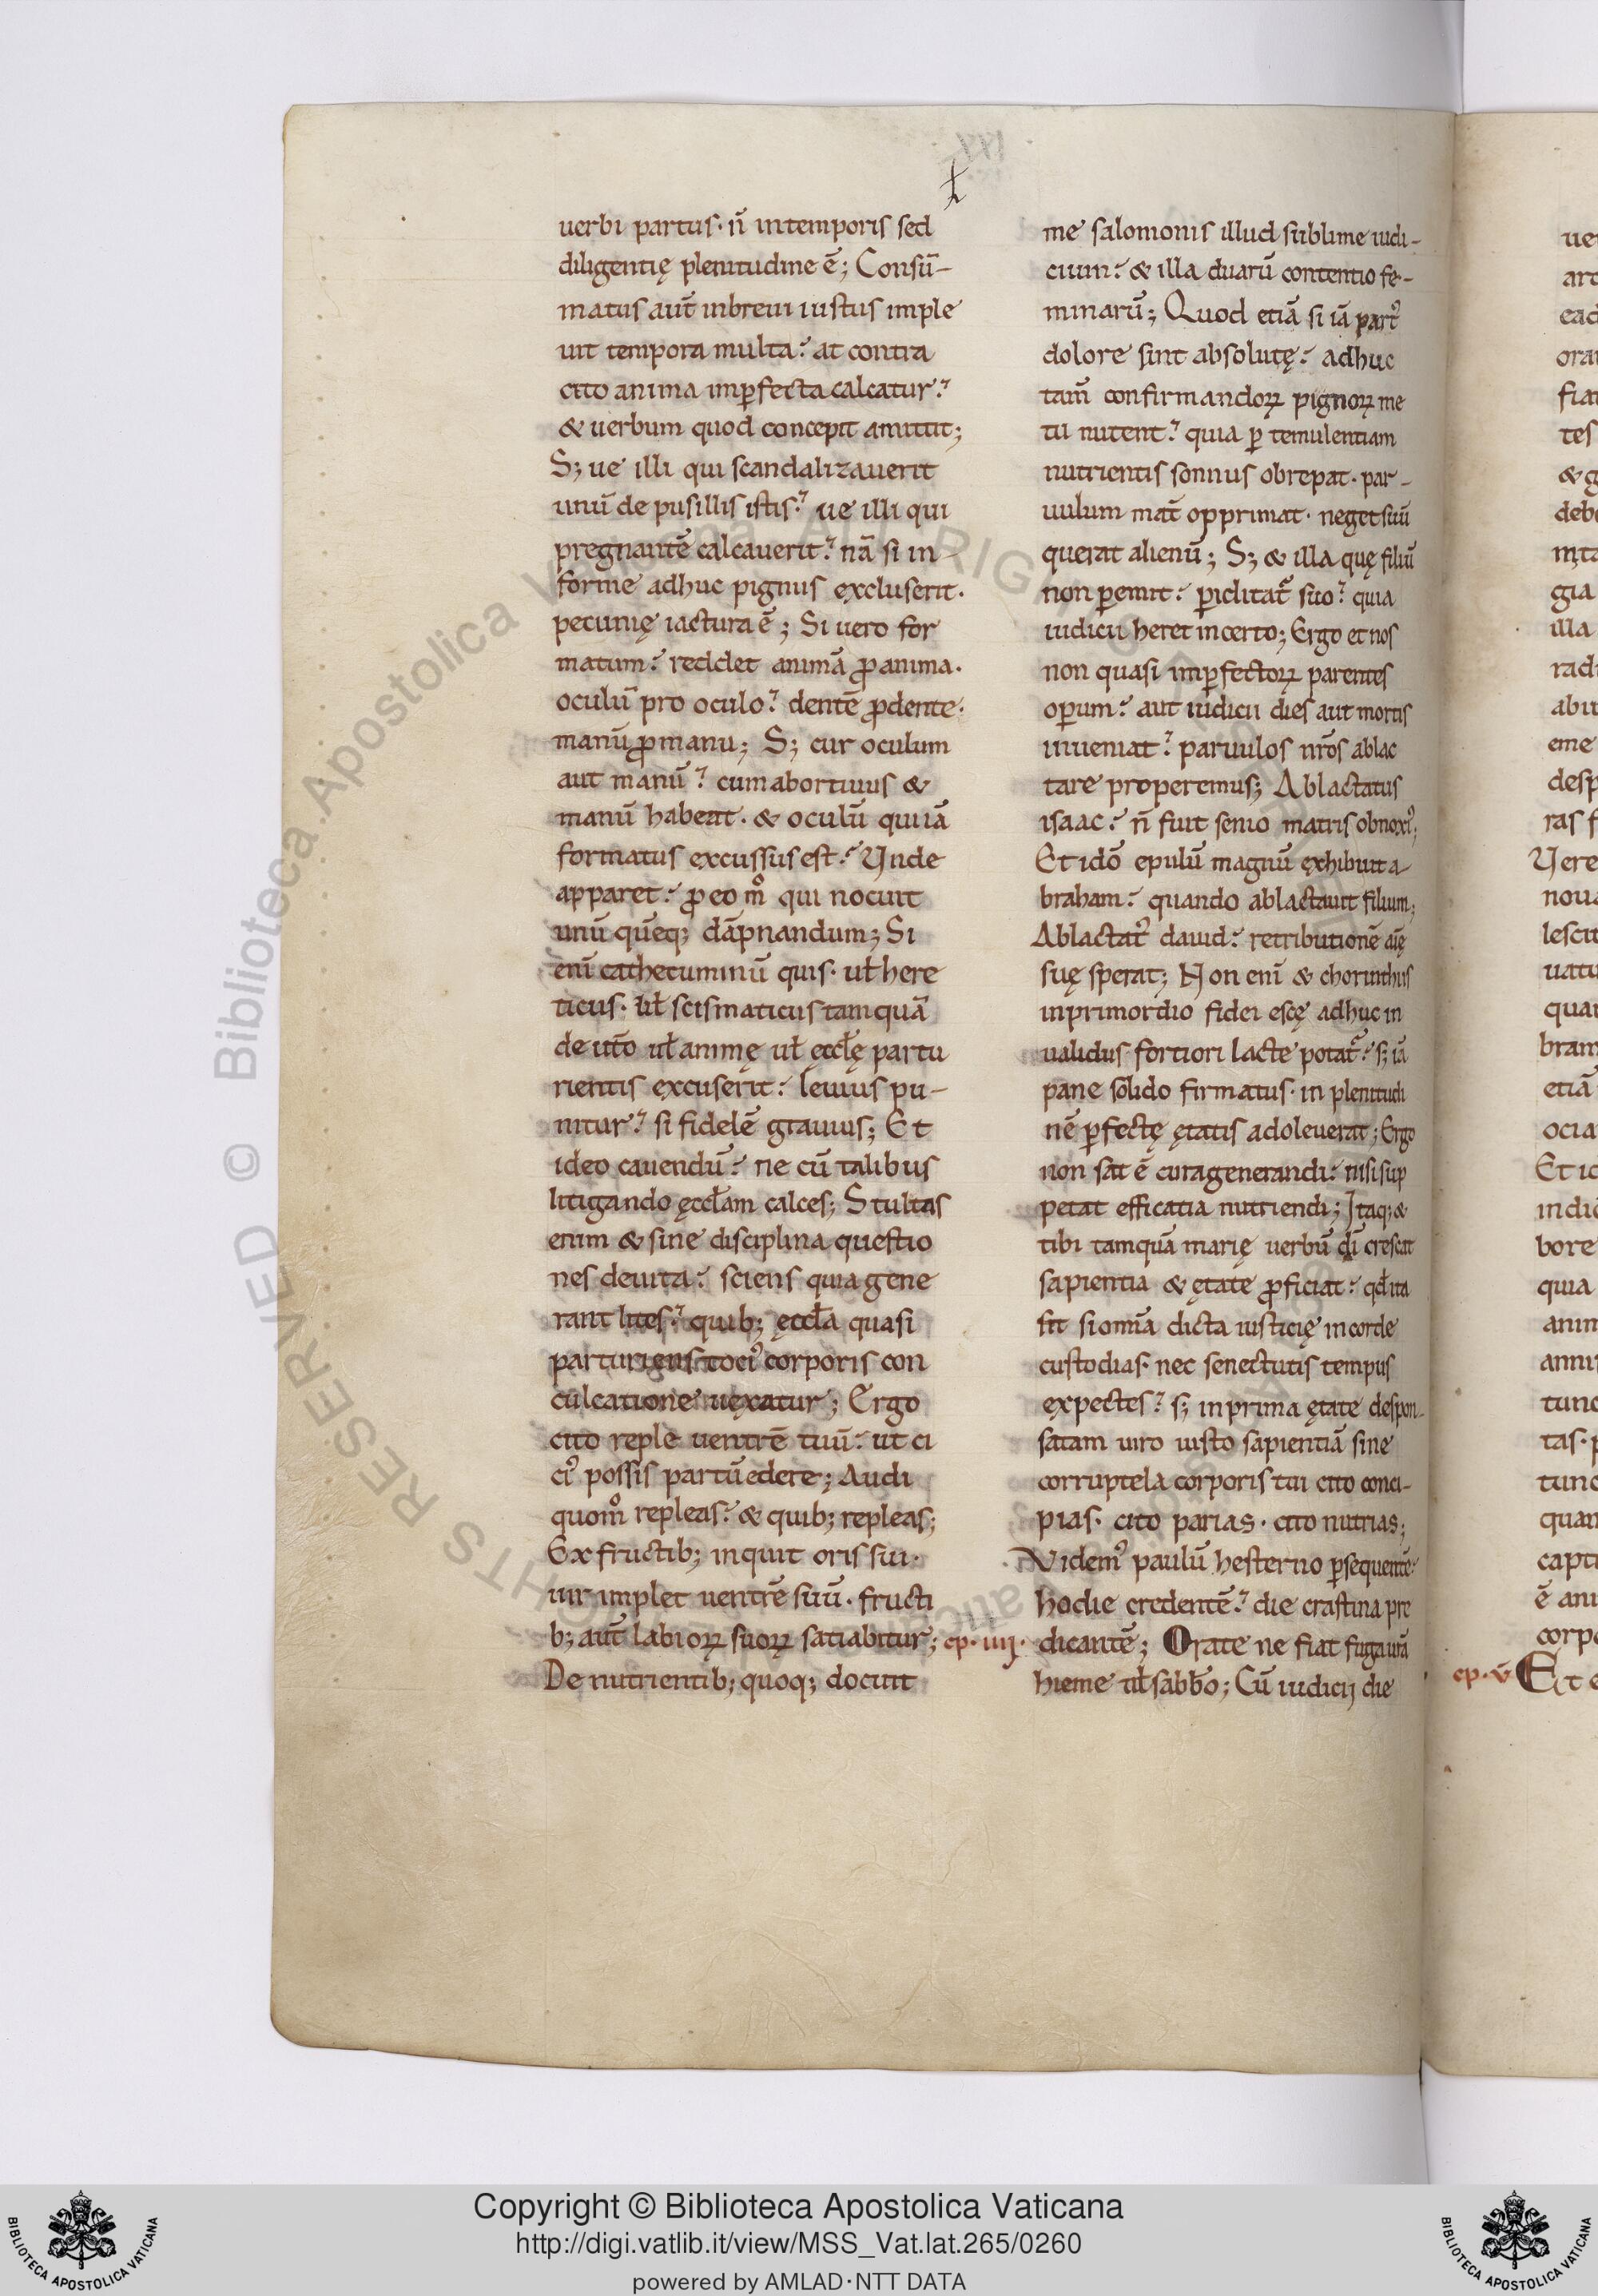 uerbi partus· n̄ intemporis sed
diligentię plenitudine ē; Consū-
matus aūt inbreui iustus imple
uit tempora multa? at contra
cito anima imꝑfecta calcatur?
& uerbum quod concepit amittit;
S; ue illi qui scandalizauerit
unū de pusillis istis? ue illi qui
pregnantē calcauerit? nā si in-
forme adhuc pignus excluserit·
pecunię iactura ē; Si uero for
matum? reddet animā ꝓanima·
oculū pro oculo? dentē ꝓdente·
manū ꝓmanu; S; cur oculum
aut manū? cum abortiuus &
manū habeat· & oculū qui iā
formatus excussus est? Unde
apparet? ꝓ eo m̊ qui nocuit
unū quēq; dāpnandum; Si
enī cathecuminū quis· ut̄ here
ticus· ut̄ scismaticus tamquā
de utō ut̄ animę ut̄ ęccłę partu
rientis excuserit? leuius pu-
nitur? si fidelē grauius; Et
ideo cauendū? ne cū talibus
litigando ęccłam calces; Stultas
enim & sine disciplina questio
nes deuita? sciens quia gene
rant lites? quib; ęccła quasi
parturiens toci᾿ corporis con
culcatione uexatur; Ergo
cito reple uentrē tuū? ut ci
ci᾿ possis partū edere; Audi
quom̊ repleas? & quib; repleas;
Ex fructib; inquit oris sui·
uir implet uentrē suū· fructi
b; aūt labioꝝ suoꝝ satiabitur;
ep· iiij·
De nutrientib; quoq; docuit
me salomonis illud sublime iudi-
cium? & illa duarū contentio fe-
minarū; Quod etiā si iā part᾿
dolore sint absolutę? adhuc
tam̄ confirmandoꝝ pignoꝝ me
tu nutent? quia ꝑ temulentiam
nutrientis somnus obrepat· par-
uulum mat̄ opprimat· neget suū
querat alienū; S; & illa quę filiū
non ꝑemit? ꝑiclitat᾿ suo? quia
iudicii heret incerto; Ergo et nos
non quasi imꝑfectoꝝ parentes
oꝑum? aut iudicii dies aut mortis
inueniat? paruulos nr̄os ablac
tare properemus; Ablactatus
isaac? n̄ fuit senio matris obnoxi᾿;
Et idō epulū magnū exhibuit a-
braham? quando ablactauit filium;
Ablactat᾿ dauid? retributionē aīę
suę sperat; Non enī & chorinthus
inprimordio fidei escę adhuc in
ualidus fortiori lacte potat᾿? s; iā
pane solido firmatus· in plenitudi
nē ꝑfectę ętatis adoleuerat; Ergo
non sat ē cura generandi? nisi sup
petat efficatia nutriendi; Itaq; &
tibi tamquā marię uerbū dī crescat
sapientia & ętate ꝓficiat? qd̄ ita
fit si omīa dicta iusticię incorde
custodias· nec senectutis tempus
expectes? s; inprima ętate despon-
satam uiro iusto sapientiā sine
corruptela corporis tui cito conci-
pias· cito parias· cito nutrias;
Videm᾿ paulū hesterno ꝑsequentē?
hodie credentē? die crastina pre
dicantē; Orate ne fiat fuga urā
hieme ut̄ sabb̄o; Cū iudicij die
ep· v̄
Copyright © Biblioteca Apostolica Vaticana
http://digi.vatlib.it/view/MSS_Vat.lat.265/0260
powered by AMLAD·NTT DATA
BIBLIOTECA APOSTOLICA VATICANA
BIBLIOTECA APOSTOLICA VATICANA